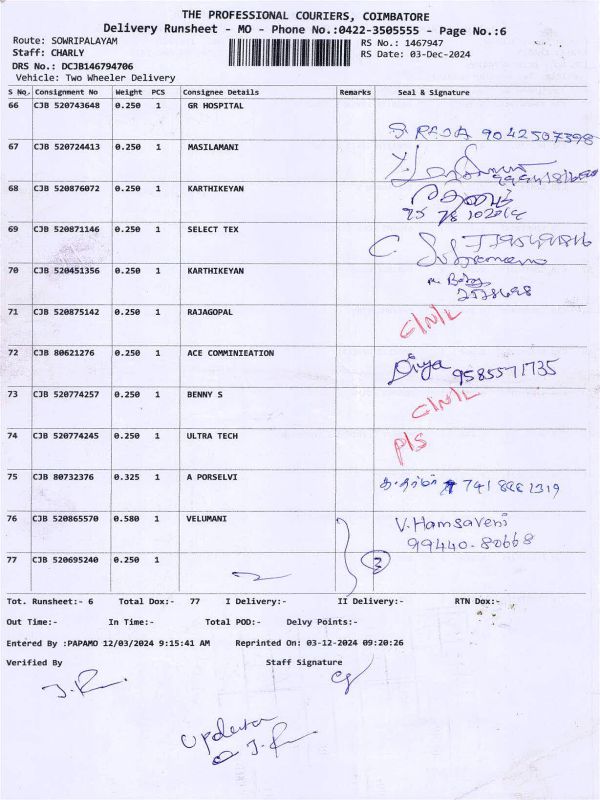 THE PROFESSIONAL COURIERS, COIMBATORE
Delivery Runsheet - MO - Phone No.:0422-3505555 - Page No.:6
Route: SOWRIPALAYAM RS No.: 1467947
Staff: CHARLY RS Date: 03-Dec-2024
DRS No.: DCJB146794706
Vehicle: Two Wheeler Delivery
S No. Consignment No Weight PCS Consignee Details Remarks Seal & Signature
66 CJB 520743648 0.250 1 GR HOSPITAL
RAJA 9042507398
67 CJB 520724413 0.250 1 MASILAMANI
68 CJB 520876072 0.250 1 KARTHIKEYAN
69 CJB 520871146 0.250 1 SELECT TEX
70 CJB 520451356 0.250 1 KARTHIKEYAN
71 CJB 520875142 0.250 1 RAJAGOPAL
C/N/L
72 CJB 80621276 0.250 1 ACE COMMINIEATION
Divya 9585571735
73 CJB 520774257 0.250 1 BENNY S
C/N/L
74 CJB 520774245 0.250 1 ULTRA TECH
P/S
75 CJB 80732376 0.325 1 A PORSELVI
76 CJB 520865570 0.580 1 VELUMANI V. Hamsaveni
99440-80668
77 CJB 520695240 0.250 1
Tot. Runsheet:- 6 Total Dox:- 77 I Delivery:- II Delivery:- RTN Dox:-
Out Time:- In Time:- Total POD:- Delvy Points:-
Entered By :PAPAMO 12/03/2024 9:15:41 AM Reprinted On: 03-12-2024 09:20:26
Verified By Staff Signature